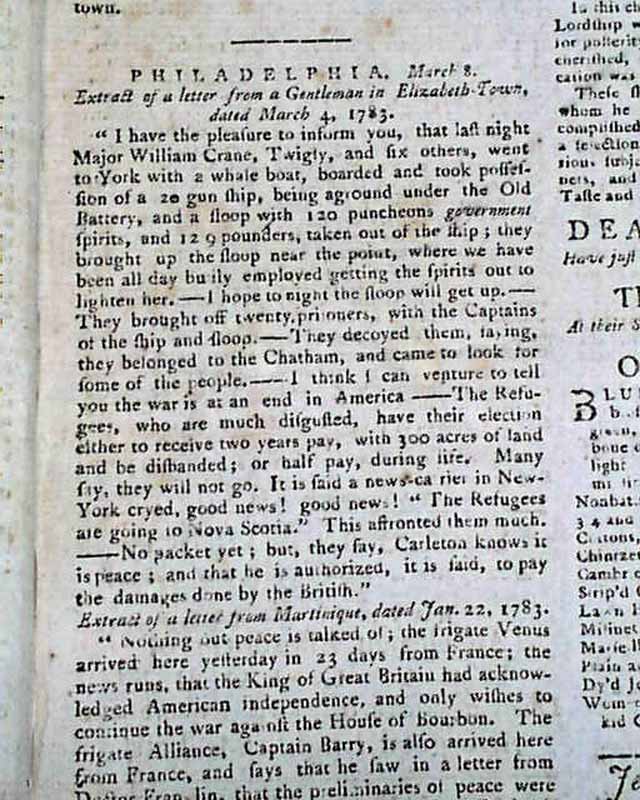 town.
PHILADELPHIA. March 8.
Extract of a letter from a Gentleman in Elizabeth-Town,
dated March 4, 1783.
“ I have the pleaſure to inform you, that laſt night
Major William Crane, Twigly, and ſix others, went
to York with a whale boat, boarded and took poſſeſ-
ſion of a 20 gun ſhip, being aground under the Old
Battery, and a ſloop with 120 puncheons government
ſpirits, and 12 9 pounders, taken out of the ſhip ; they
brought up the ſloop near the point, where we have
been all day buſily employed getting the ſpirits out to
lighten her.—I hope to night the ſloop will get up.—
They brought off twenty priſoners, with the Captains
of the ſhip and ſloop.—They decoyed them, ſaying,
they belonged to the Chatham, and came to look for
ſome of the people.——I think I can venture to tell
you the war is at an end in America——The Refu-
gees, who are much diſguſted, have their election
either to receive two years pay, with 300 acres of land
and be diſbanded; or half pay, during life. Many
ſay, they will not go. It is ſaid a news-carrier in New-
York cryed, good news! good news! “ The Refugees
are going to Nova Scotia.” This affronted them much.
——No packet yet ; but, they ſay, Carleton knows it
is peace ; and that he is authorized, it is ſaid, to pay
the damages done by the Britiſh.”
Extract of a letter from Martinique, dated Jan. 22, 1783.
“ Nothing but peace is talked of ; the frigate Venus
arrived here yeſterday in 23 days from France; the
news runs, that the King of Great Britain had acknow-
ledged American independence, and only wiſhes to
continue the war againſt the Houſe of Bourbon. The
frigate Alliance, Captain Barry, is alſo arrived here
from France, and ſays that he ſaw in a letter from
Doctor Franklin, that the preliminaries of peace were
In this
Lordſhip
for poſterity
cheriſhed,
cation was
Theſe
whom he
compliſhed
a ſelection
tious, ſubj
ners, and
Taſte and
DEA
Have juſt
At their S
O
BLU
light
Noabat
3 4 and
Cottons,
Chintzes
Cambr
Strip'd
Lawn
Plain a
Dy'd
Wom
kid